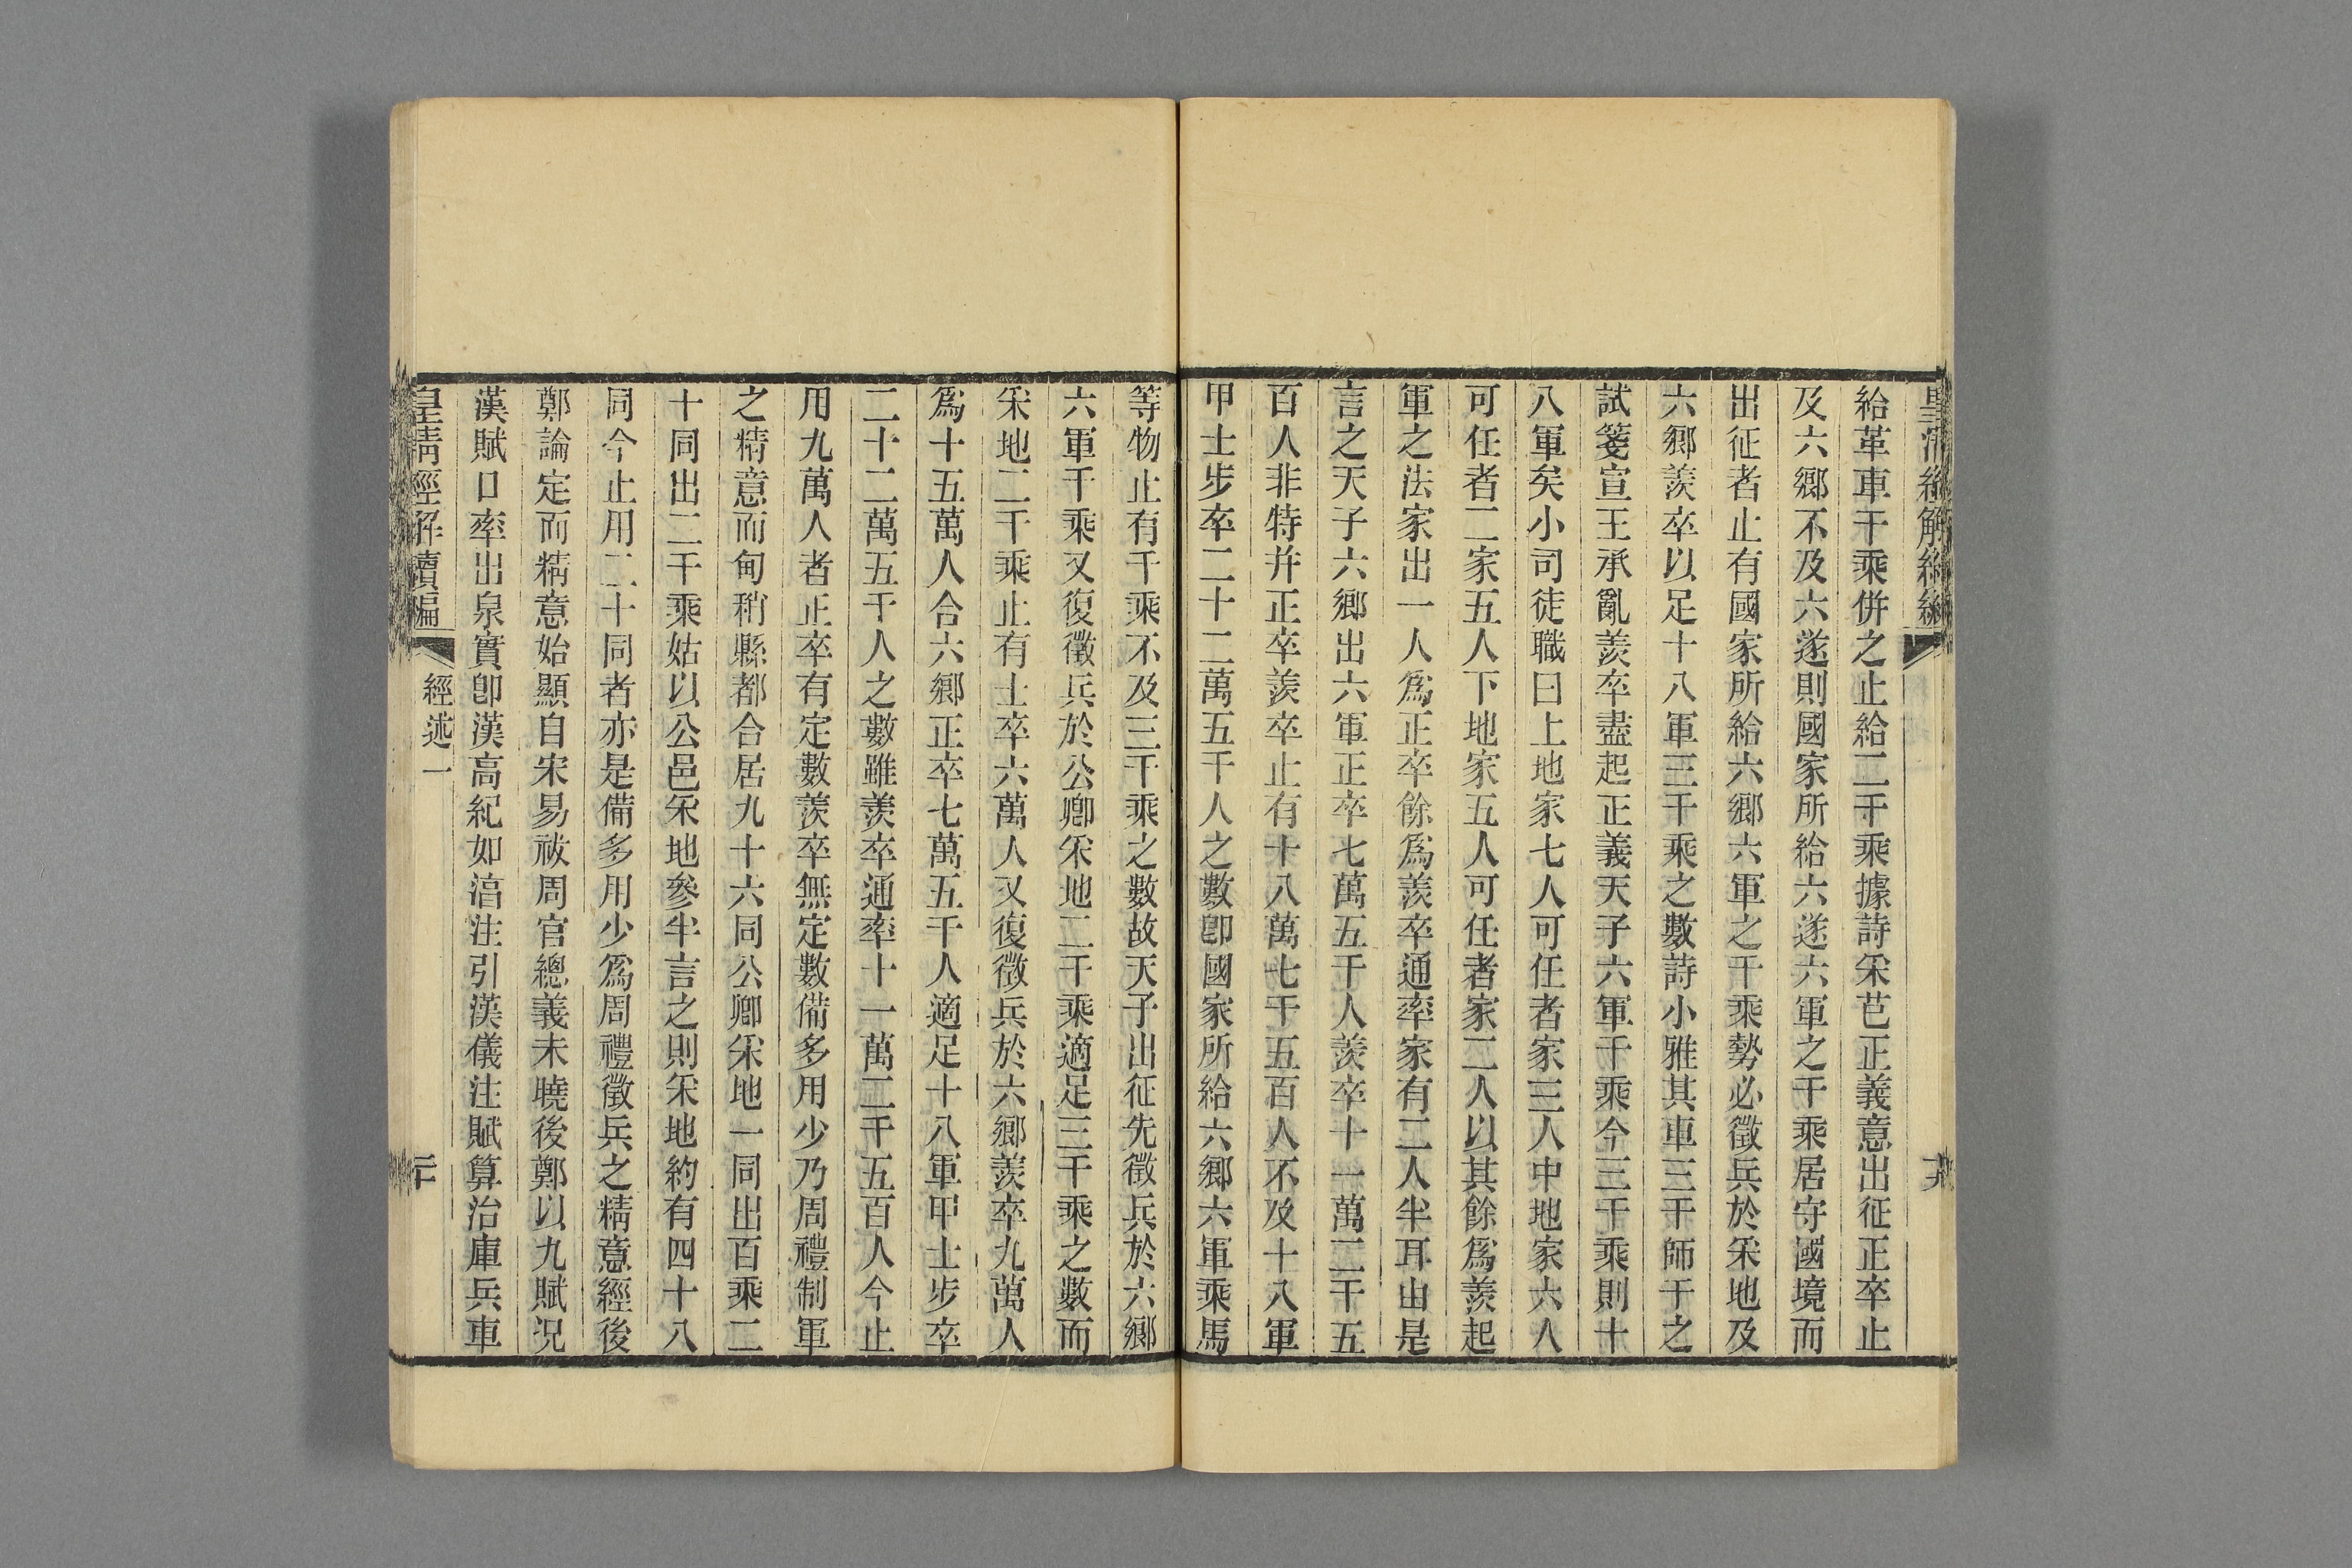 皇清經解續編
十九
給革車千乘併之止給二千乘據詩采芑正義意出征正卒止
及六鄉不及六遂則國家所給六遂六軍之千乘居守國境而
出征者止有國家所給六鄉六軍之千乘勢必徵兵於采地及
六鄉羨卒以足十八軍三千乘之數詩小雅其車三千師干之
試箋宣王承亂羨卒盡起正義天子六軍千乘今三千乘則十
八軍矣小司徒職曰上地家七人可任者家三人中地家六人
可任者二家五人下地家五人可任者家二人以其餘爲羨起
軍之法家出一人爲正卒餘爲羨卒通率家有二人半耳由是
言之天子六鄉出六軍正卒七萬五千人羨卒十一萬二千五
百人非特并正卒羨卒止有十八萬七千五百人不及十八軍
甲士步卒二十二萬五千人之數卽國家所給六鄉六軍乘馬
等物止有千乘不及三千乘之數故天子出征先徵兵於六鄉
六軍千乘又復徵兵於公卿采地二千乘適足三千乘之數而
采地二千乘止有士卒六萬人又復徵兵於六鄉羨卒九萬人
爲十五萬人合六鄉正卒七萬五千人適足十八軍甲士步卒
二十二萬五千人之數雖羨卒通率十一萬二千五百人今止
用九萬人者正卒有定數羨卒無定數備多用少乃周禮制軍
之精意而甸稍縣都合居九十六同公卿采地一同出百乘二
十同出二千乘姑以公邑采地參半言之則采地約有四十八
同今止用二十同者亦是備多用少爲周禮徵兵之精意經後
鄭論定而精意始顯自宋易祓周官總義未曉後鄭以九賦況
漢賦口率出泉實卽漢高紀如淳注引漢儀注賦算治庫兵車
皇清經解續編
經述一
二十